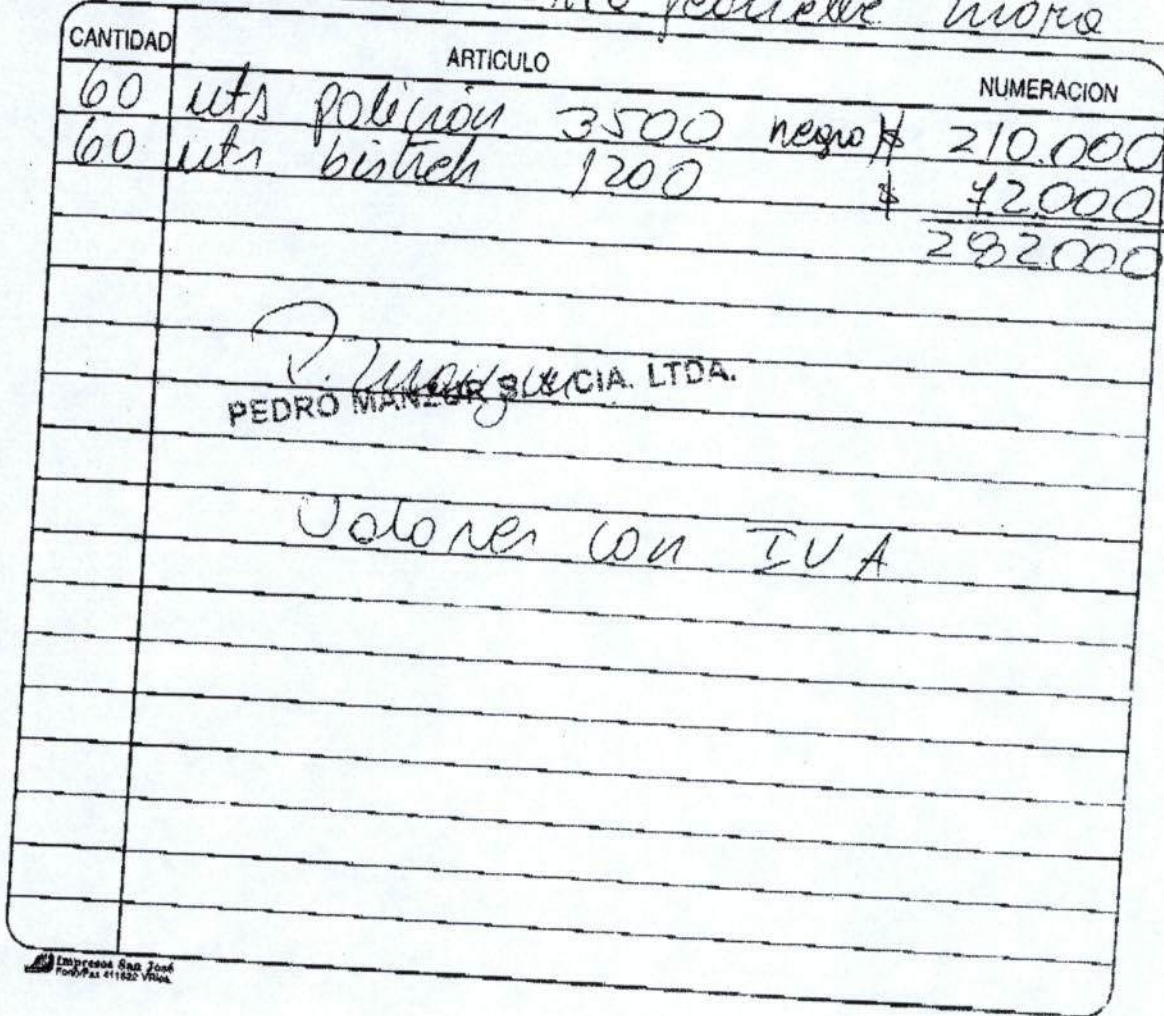 mora
CANTIDAD ARTICULO NUMERACION
60 mts 3500 negro $ 210.000
60 mts bistrech 1200 $ 72.000
282.000
PEDRO MANZUR CIA. LTDA.
Valores con IVA
Impresos San José